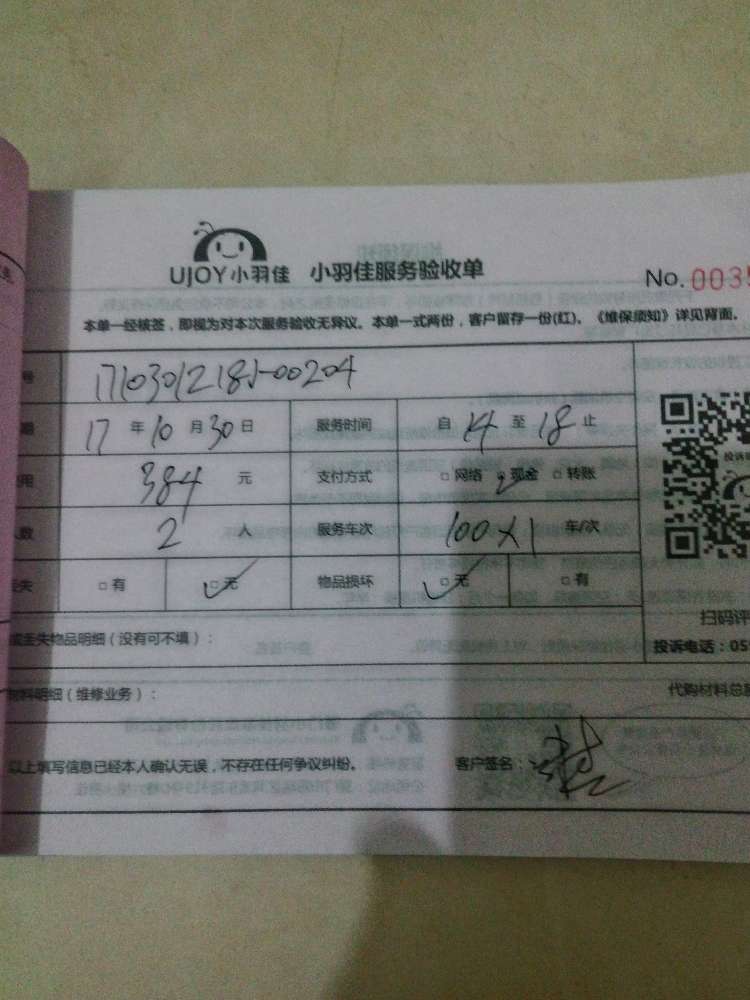 UJOY小羽佳 小羽佳服务验收单
No. 003
本单一经核签，即视为对本次服务验收无异议。本单一式两份，客户留存一份(红)。《维保须知》详见背面。
号 171030121815-00204
17 年 10 月 30 日 服务时间 自 14 至 18 止
用 384 元 支付方式 □网络 现金 □转账
人数 2 人 服务车次 100×1 车/次
丢失 □有 □无 物品损坏 □无 □有
投诉
扫码评
或丢失物品明细（没有可不填）：
投诉电话：05
材料明细（维修业务）：
代购材料总
以上填写信息已经本人确认无误，不存在任何争议纠纷。 客户签名：